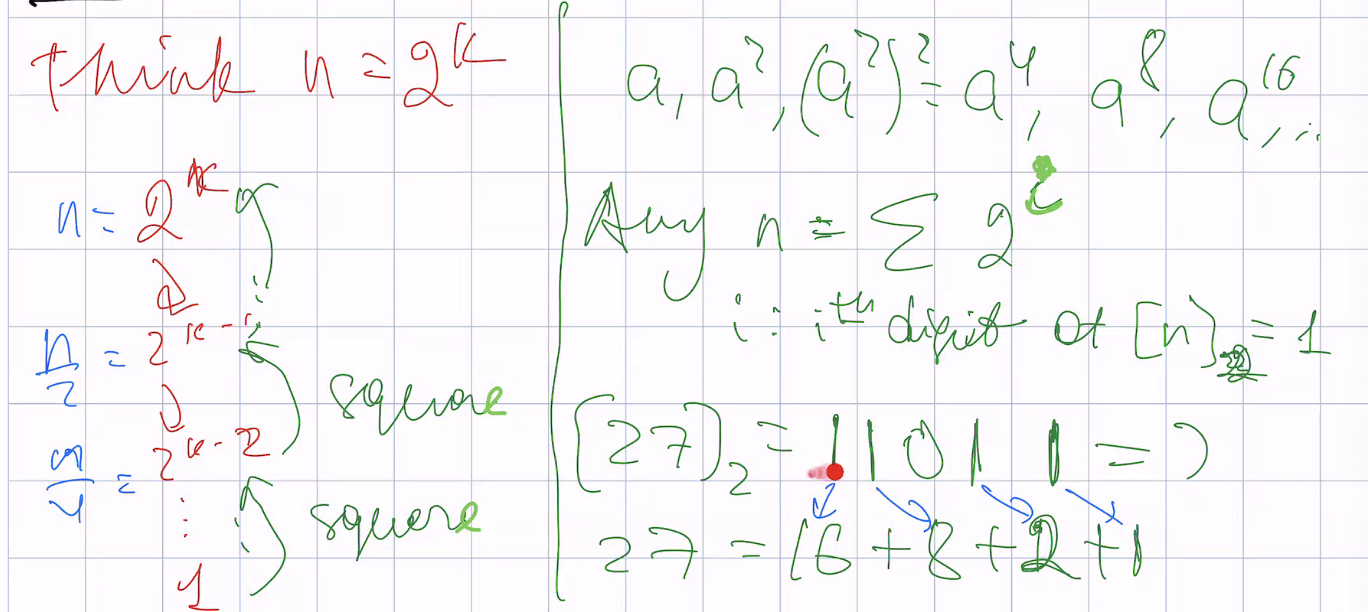 think n = 2^k
n = 2^k
n/2 = 2^(k-1)
square
n/4 = 2^(k-2)
square
⋮
1
a, a², (a²)² = a⁴, a⁸, a¹⁶, ...
Any n = Σ 2^i
i : i^th digit of [n]₂ = 1
[27]₂ = 1 1 0 1 1 = )
27 = 16 + 8 + 2 + 1